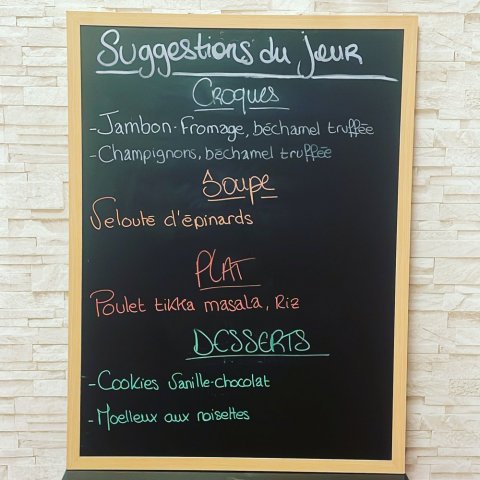 Suggestions du jour
Croques
- Jambon-Fromage, béchamel truffée
- Champignons, béchamel truffée
Soupe
Velouté d'épinards
PLAT
Poulet tikka masala, Riz
DESSERTS
- Cookies Vanille-chocolat
- Moelleux aux noisettes